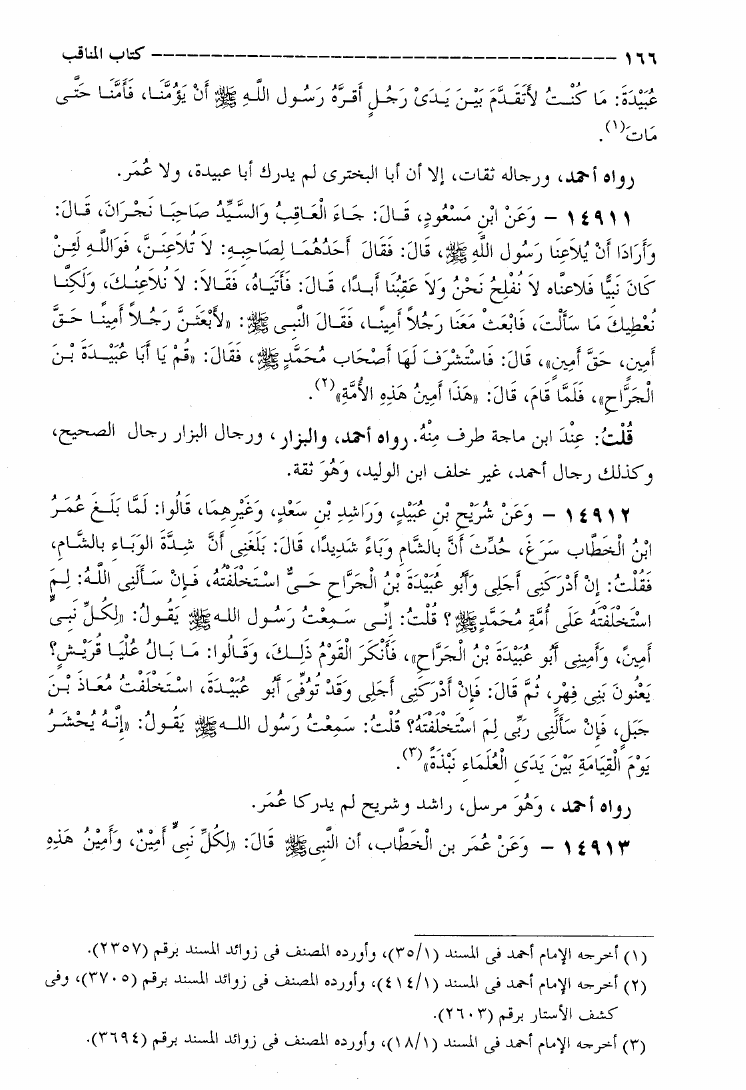 ١٦٦ ------------------------------------------ كتاب المناقب
عُبَيْدَةَ: مَا كُنْتُ لأَتَقَدَّمَ بَيْنَ يَدَىْ رَجُلٍ أَقَرَّهُ رَسُول اللَّهِ ﷺ أَنْ يَؤُمَّنَا، فَأَمَّنَا حَتَّى
مَاتَ(١).
رواه أحمد، ورجاله ثقات، إلا أن أبا البخترى لم يدرك أبا عبيدة، ولا عُمَر.
١٤٩١١ – وَعَنْ ابْنِ مَسْعُودٍ، قَالَ: جَاءَ الْعَاقِبُ وَالسَّيِّدُ صَاحِبَا نَجْرَانَ، قَالَ:
وَأَرَادَا أَنْ يُلاَعِنَا رَسُول اللَّهِ ﷺ، قَالَ: فَقَالَ أَحَدُهُمَا لِصَاحِبِهِ: لاَ تُلاَعِنَّ، فَوَاللَّهِ لَئِنْ
كَانَ نَبِيًّا فَلاعنَّاه لاَ نُفْلِحُ نَحْنُ وَلاَ عَقِبُنَا أَبَدًا، قَالَ: فَأَتَيَاهُ، فَقَالاَ: لاَ نُلاَعِنُكَ، وَلَكِنَّا
نُعْطِيكَ مَا سَأَلْتَ، فَابْعَثْ مَعَنَا رَجُلاً أَمِينًا، فَقَالَ النَّبِى ﷺ: «لأَبْعَثَنَّ رَجُلاً أَمِينًا حَقَّ
أَمِينٍ، حَقَّ أَمِينٍ»، قَالَ: فَاسْتَشْرَفَ لَهَا أَصْحَاب مُحَمَّدٍ ﷺ، فَقَالَ: «قُمْ يَا أَبَا عُبَيْدَةَ بْنَ
الْجَرَّاحِ»، فَلَمَّا قَامَ، قَالَ: «هَذَا أَمِينُ هَذِهِ الأُمَّةِ»(٢).
قُلْتُ: عِنْدَ ابن ماجة طرف مِنْهُ. رواه أحمد، والبزار، ورجال البزار رجال الصحيح،
وكذلك رجال أحمد، غير خلف ابن الوليد، وَهُوَ ثقة.
١٤٩١٢ – وَعَنْ شُرَيْحِ بْنِ عُبَيْدٍ، وَرَاشِدِ بْنِ سَعْدٍ، وَغَيْرِهِمَا، قَالُوا: لَمَّا بَلَغَ عُمَرُ
ابْنُ الْخَطَّابِ سَرَغَ، حُدِّثَ أَنَّ بِالشَّامِ وَبَاءً شَدِيدًا، قَالَ: بَلَغَنِى أَنَّ شِدَّةَ الْوَبَاءِ بِالشَّامِ،
فَقُلْتُ: إِنْ أَدْرَكَنِى أَجَلِى وَأَبُو عُبَيْدَةَ بْنُ الْجَرَّاحِ حَىٌّ اسْتَخْلَفْتُهُ، فَإِنْ سَأَلَنِى اللَّهُ: لِمَ
اسْتَخْلَفْتَهُ عَلَى أُمَّةِ مُحَمَّدٍ ﷺ؟ قُلْتُ: إِنِّى سَمِعْتُ رَسُول اللـه ﷺ يَقُولُ: «لِكُلِّ نَبِىٍّ
أَمِينٌ، وَأَمِينِى أَبُو عُبَيْدَةَ بْنُ الْجَرَّاحِ»، فَأَنْكَرَ الْقَوْمُ ذَلِكَ، وَقَالُوا: مَا بَالُ عُلْيَا قُرَيْشٍ؟
يَعْنُونَ بَنِى فِهْرٍ، ثُمَّ قَالَ: فَإِنْ أَدْرَكَنِى أَجَلِى وَقَدْ تُوُفِّىَ أَبُو عُبَيْدَةَ، اسْتَخْلَفْتُ مُعَاذَ بْنَ
جَبَلٍ، فَإِنْ سَأَلَنِى رَبِّى لِمَ اسْتَخْلَفْتَهُ؟ قُلْتُ: سَمِعْتُ رَسُول اللـه ﷺ يَقُولُ: «إِنَّهُ يُحْشَرُ
يَوْمَ الْقِيَامَةِ بَيْنَ يَدَىِ الْعُلَمَاءِ نَبْذَةً»(٣).
رواه أحمد، وَهُوَ مرسل، راشد وشريح لم يدركا عُمَر.
١٤٩١٣ – وَعَنْ عُمَر بن الْخَطَّاب، أن النَّبِى ﷺ قَالَ: «لِكُلِّ نَبِىٍّ أَمِيْنٌ، وَأَمِيْنُ هَذِهِ
(١) أخرجه الإمام أحمد فى المسند (٣٥/١)، وأورده المصنف فى زوائد المسند برقم (٢٣٥٧).
(٢) أخرجه الإمام أحمد فى المسند (٤١٤/١)، وأورده المصنف فى زوائد المسند برقم (٣٧٠٥)، وفى
كشف الأستار برقم (٢٦٠٣).
(٣) أخرجه الإمام أحمد فى المسند (١٨/١)، وأورده المصنف فى زوائد المسند برقم (٣٦٩٤).